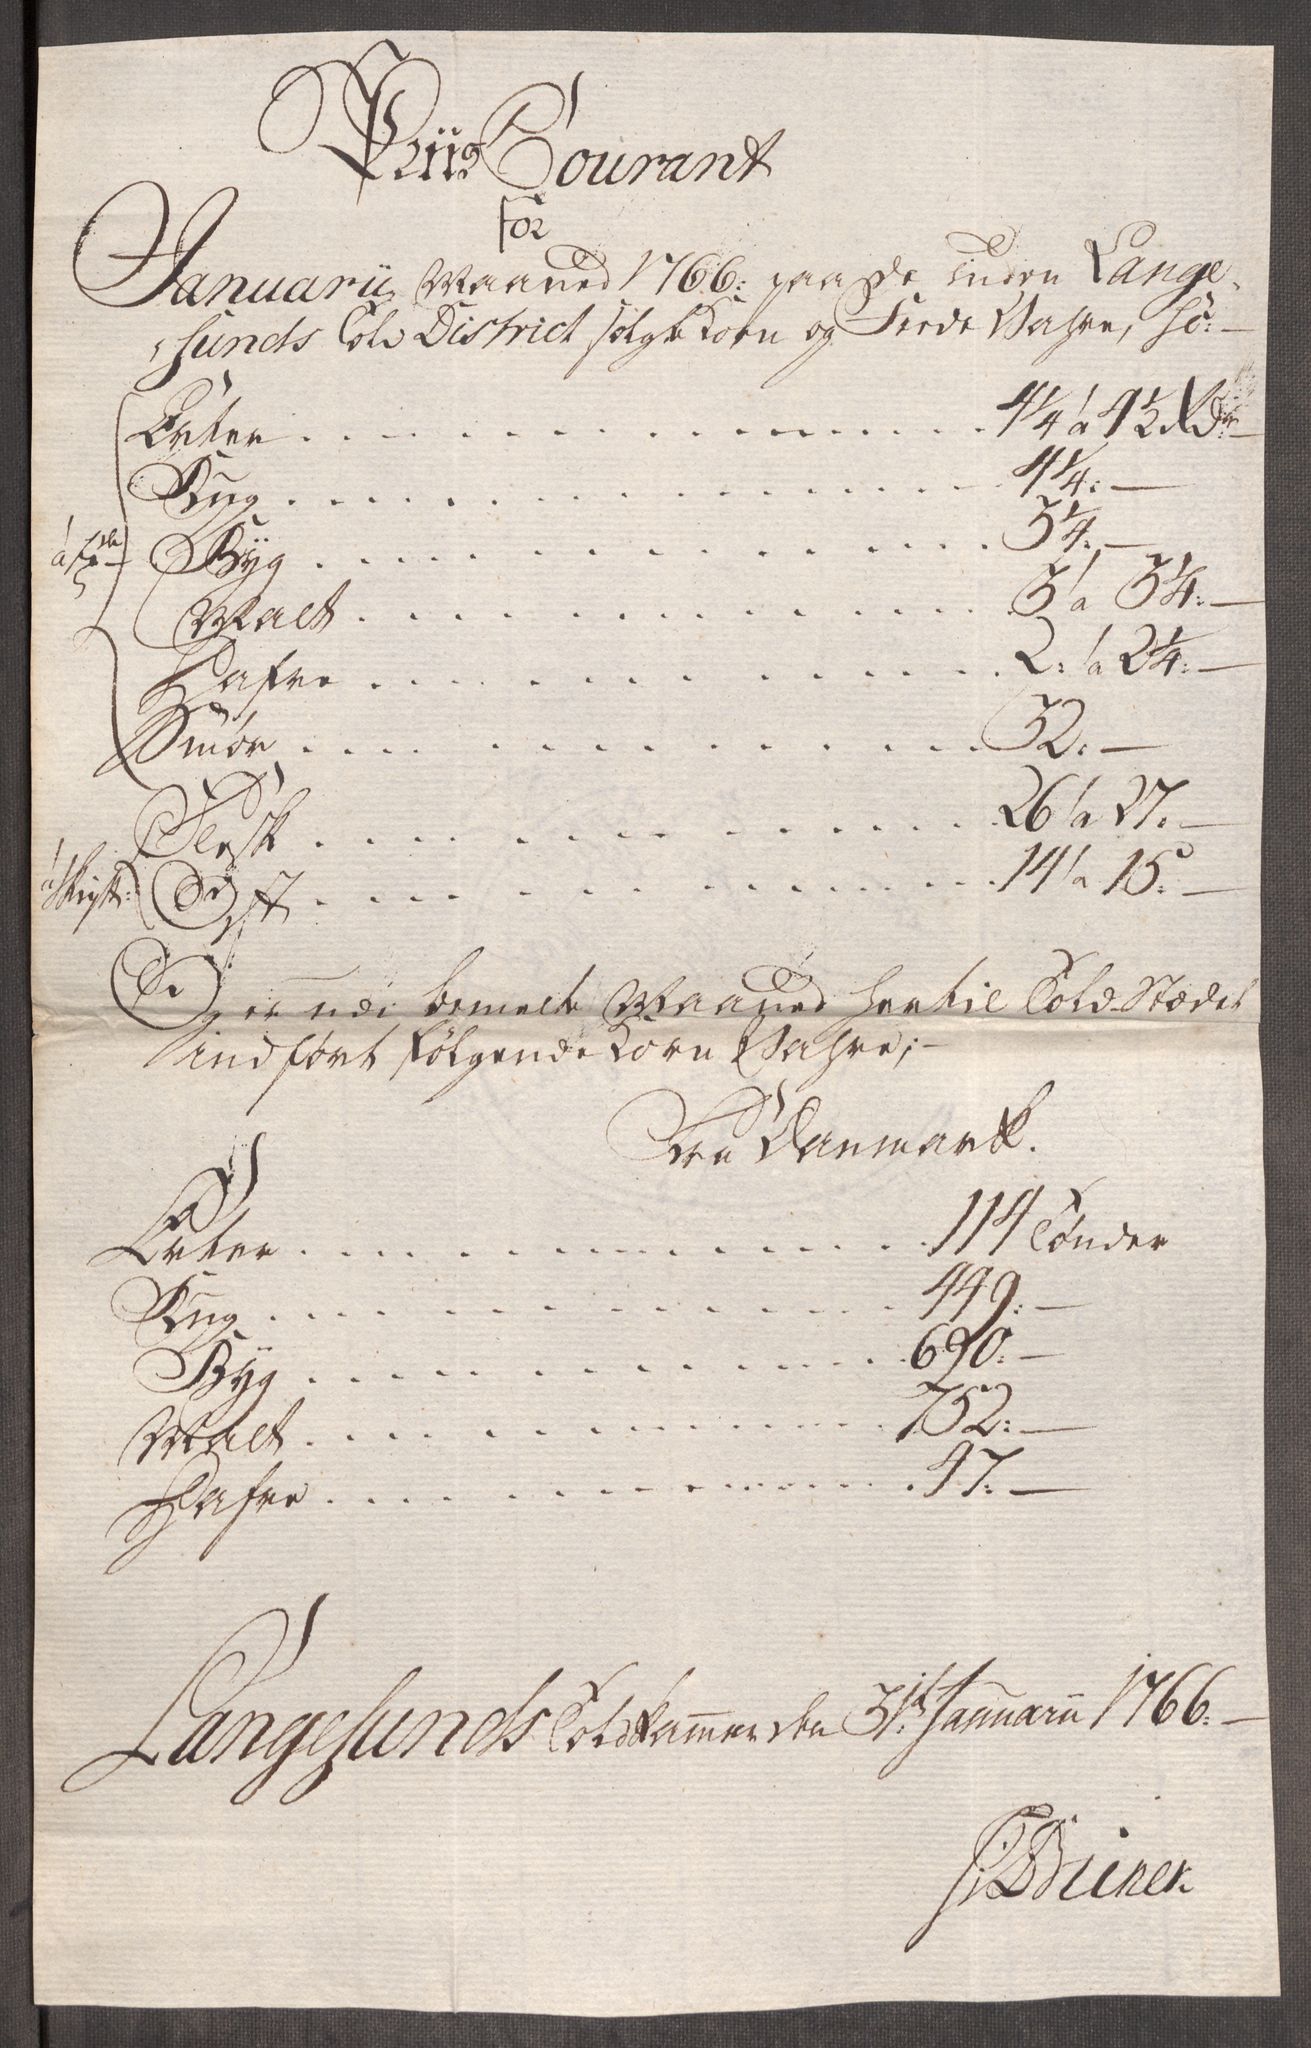 Priis Courant
for
Januarij Maaned 1766: paa de inden Lange-
sunds Told District solgte Korn og Feede Vahre, So:
Erter . . . 4 1/4 à 4 1/2 Rdr
Rug . . . 4 1/4: —
Byg . . . 3 1/4: —
Malt . . . 3 à 3 1/4: —
Hafre . . . 2: à 2 1/4: —
Smör . . . 32: —
Flesk . . . 26 à 27: —
Ost . . . 14 à 15: —
Og er udi bemelte Maaned hertil Told-Stædet
indført følgende Korn Vahre; —
Fra Danmark.
Erter . . . 114 Tønder
Rug . . . 449: —
Byg . . . 690: —
Malt . . . 752: —
Hafre . . . 47: —
Langesunds Toldkammer den 31te Januarii 1766: —